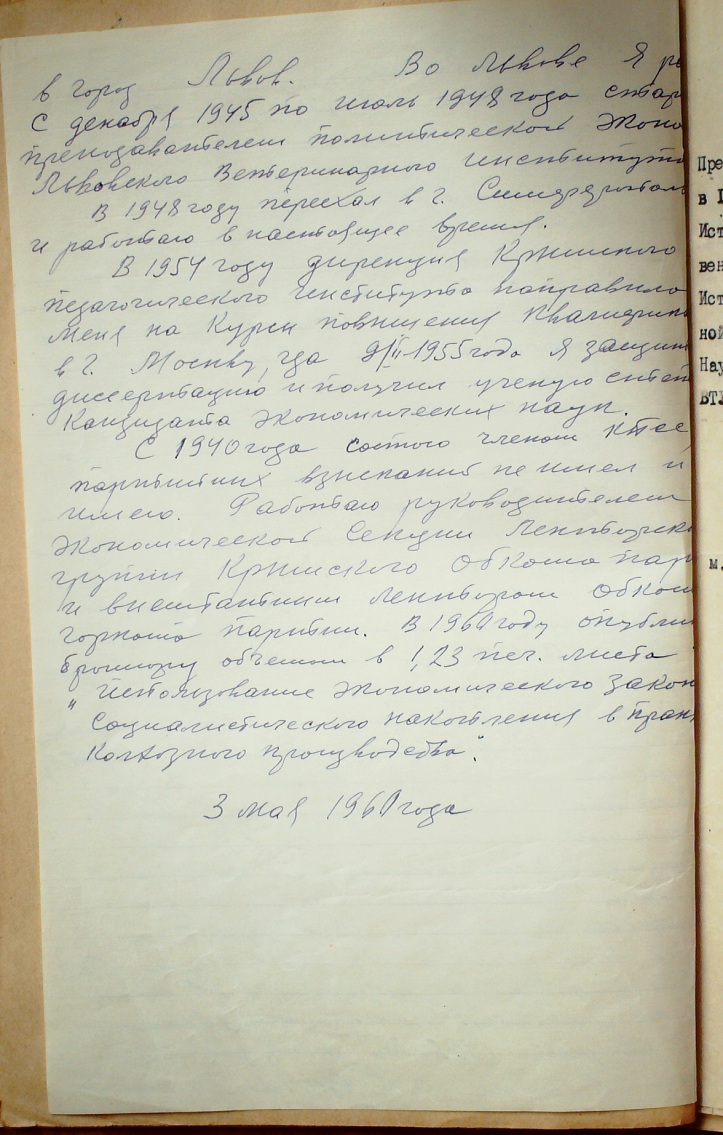 в город Львов. Во Львове я р
с декабря 1945 по июль 1948 года стар
преподавателем политической эконо
Львовского Ветеринарного института
В 1948 году переехал в г. Симферополь
и работаю в настоящее время.
В 1954 году дирекция Крымского
педагогического института направила
меня на Курсы повышения квалифик
в г. Москву, где 9/II-1955 года я защит
диссертацию и получил ученую степ
Кандидата экономических наук.
С 1940 года состою членом КПСС,
партийных взысканий не имел и
имею. Работаю руководителем
экономической секции Лекторско
группы Крымского Обкома пар
и внештатным лектором Обком
горкома партии. В 1960 году опубли
брошюру объемом в 1,23 печ. листа
"Использование экономического закон
социалистического накопления в прак
колхозного производства".
3 мая 1961 года
Пре
в
Ист
вен
Ист
ной
Нау
ВТ
м.